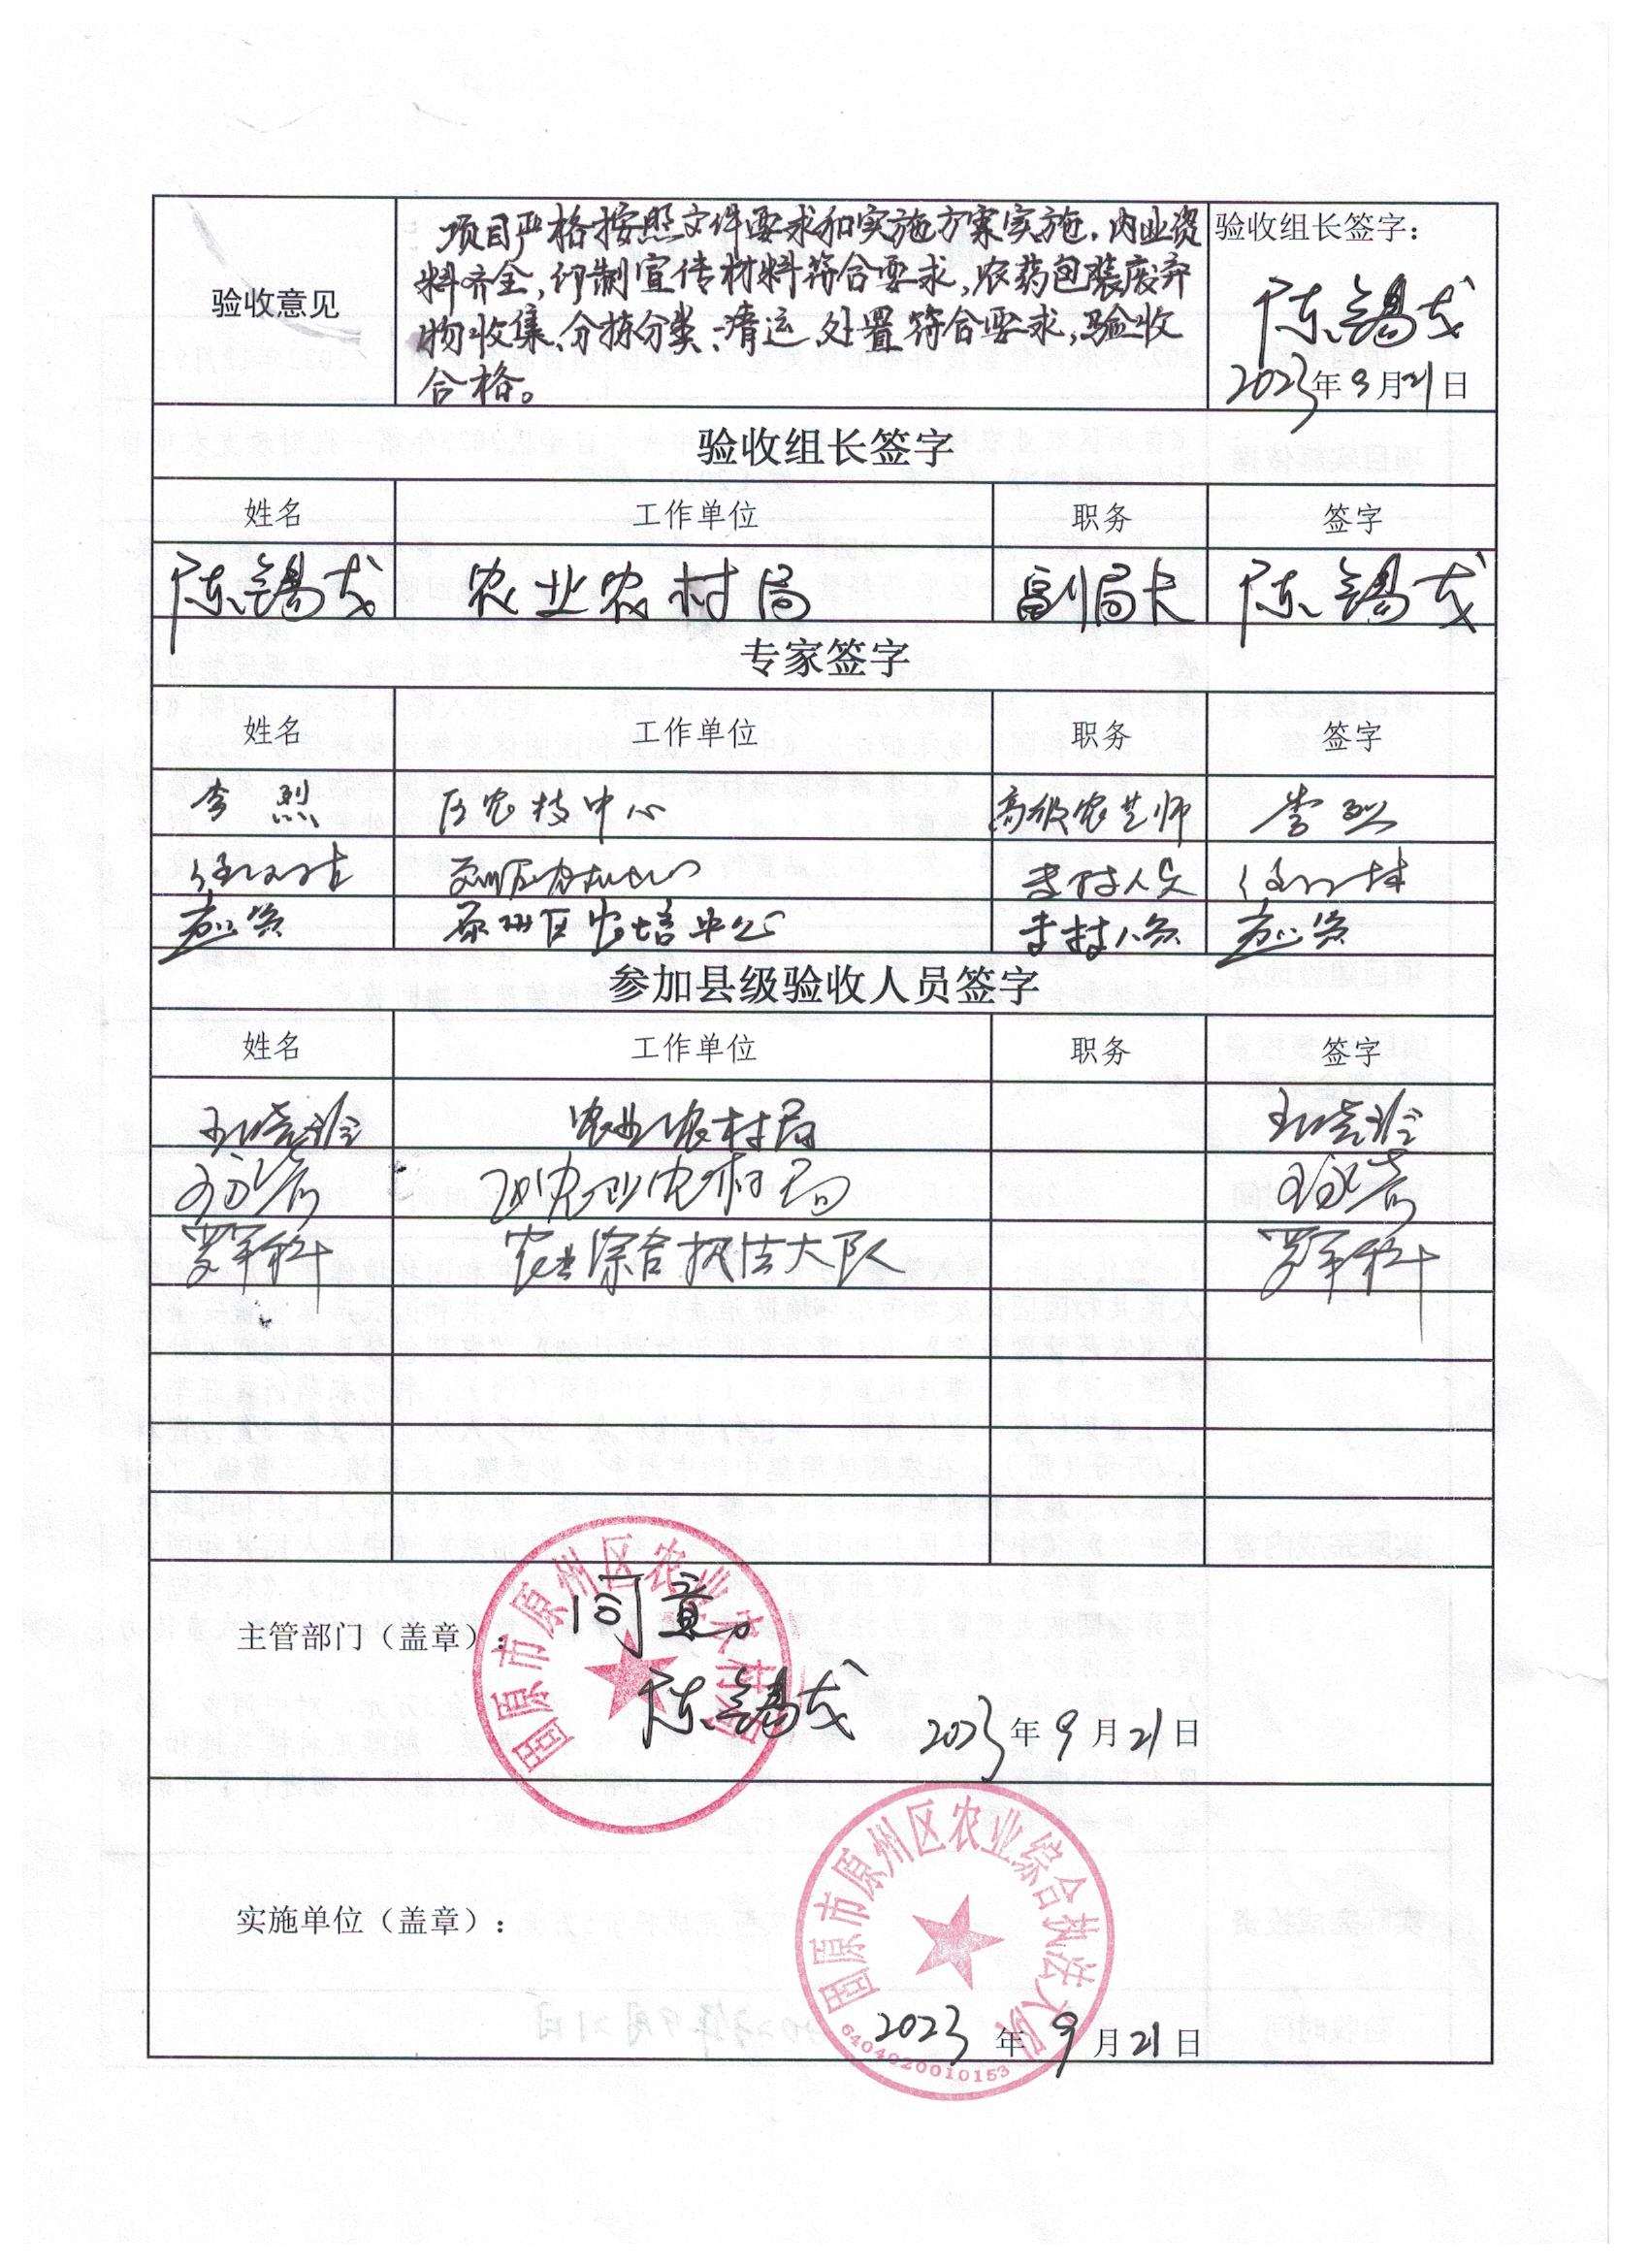 验收意见
项目严格按照文件要求和实施方案实施,内业资
料齐全,印制宣传材料符合要求,农药包装废弃
物收集、分拣分类、清运、处置符合要求,验收
合格。
验收组长签字:
陈锡戈
2023年9月21日
验收组长签字
姓名 工作单位 职务 签字
陈锡戈 农业农村局 副局长 陈锡戈
专家签字
姓名 工作单位 职务 签字
李烈 区农技中心 高级农艺师 李烈
原州区农培中心
参加县级验收人员签字
姓名 工作单位 职务 签字
农业农村局
农业农村局
罗军科 农业综合执法大队 罗军科
主管部门(盖章):
同意
陈锡戈
2023年9月21日
固原市原州区农业农村局
实施单位(盖章):
固原市原州区农业综合执法大队
6404020010153
2023年9月21日